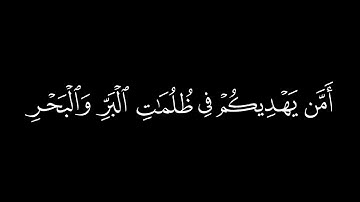 أَمَّن يَهْدِيكُمْ فِى ظُلُمَٰتِ ٱلْبَرِّ وَٱلْبَحْرِ